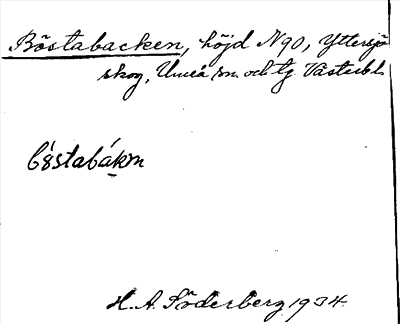 Böstabacken, höjd N90, Yttersjö
skog, Umeå sn. och tg. Västerb.l.
b8́stabákm
H. A. Söderberg 1934.